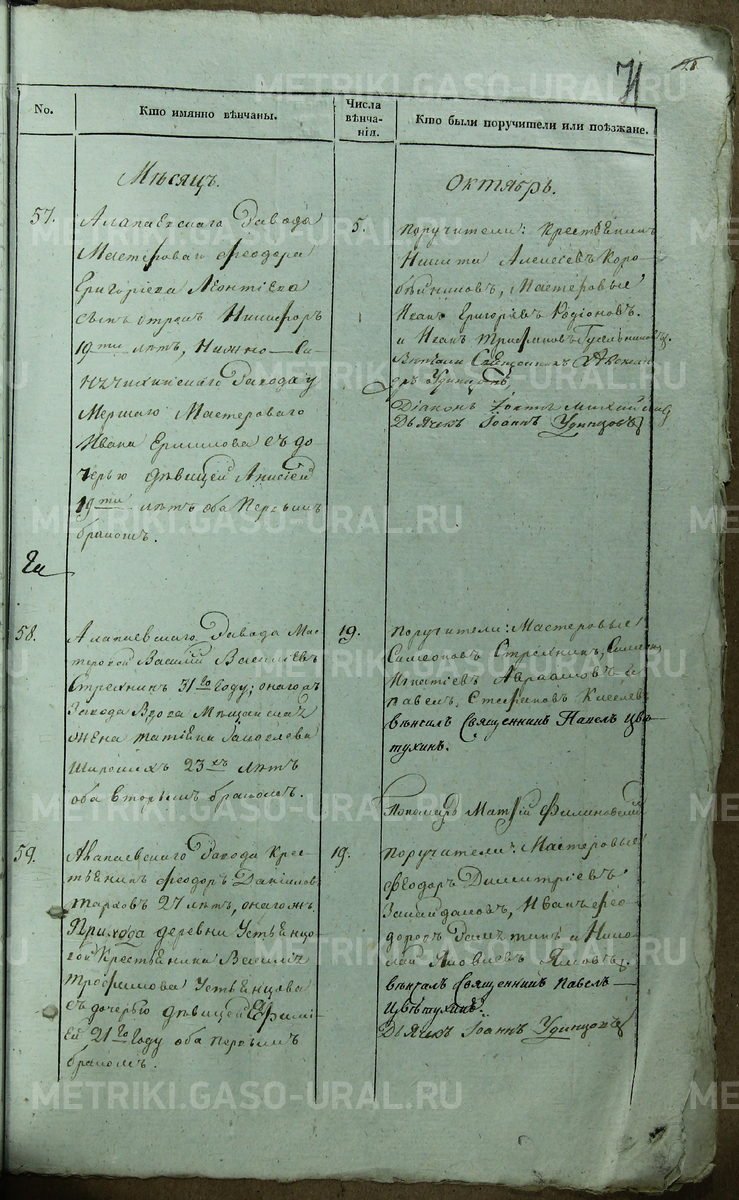 71
No.
Кто имянно вѣнчаны.
Числа вѣнчанія.
Кто были поручители или поѣзжане.
Мѣсяцъ.
Октябрь.
57.
Алапаевскаго Завода
Мастероваго Феодора
Григорьева Леонтіева
сынъ отрокъ Никифоръ
19ти лѣтъ, Нижно-Си-
нячихинскаго Завода у
Мершаго Мастероваго
Ивана Ермилова съ до
черью дѣвицей Анисіей
19ти лѣтъ оба Первымъ
бракомъ.
5.
Поручители: Крестьянинъ
Никита Алексѣевъ Коро-
бѣйниковъ, Мастеровые
Иванъ Григорьевъ Родіоновъ.
и Иванъ Трифановъ Гусельниковъ.
Вѣнчали Священникъ
Удинцовъ,
Діаконъ
Дьячекъ Іоаннъ Удинцовъ
58.
Алапаевскаго Завода Мас-
теровой Василій Васильевъ
Стрехнинъ 31го году; онагожъ
Завода Вдова
жена Татіяна
23хъ лѣтъ
оба вторымъ бракомъ.
19.
Поручители: Мастеровые
Стрехнинъ,
Игнатіевъ Авраамовъ, и
Павелъ, Стефановъ Киселевъ
вѣнчалъ Священникъ Павелъ Цвѣ-
тухинъ.
Пономарь Матфій Филиновскій
59.
Алапаевскаго Завода Крес-
тьянинъ Феодоръ Даниловъ
Тарховъ 27 лѣтъ, онагожъ
Прихода деревни Устьянцо-
вой Крестьянина Василья
Трофимова Устьянцова
съ дочерью дѣвицей Ефимі-
ей 21го году оба первымъ
бракомъ.
19.
Поручители: Мастеровые
Феодоръ Димитріевъ
Замайдановъ, Иванъ Фео-
доровъ и Нико-
лай Яковлевъ
вѣнчалъ Священникъ Павелъ
Цвѣтухинъ.
Дьячекъ Іоаннъ Удинцовъ
METRIKI.GASO-URAL.RU